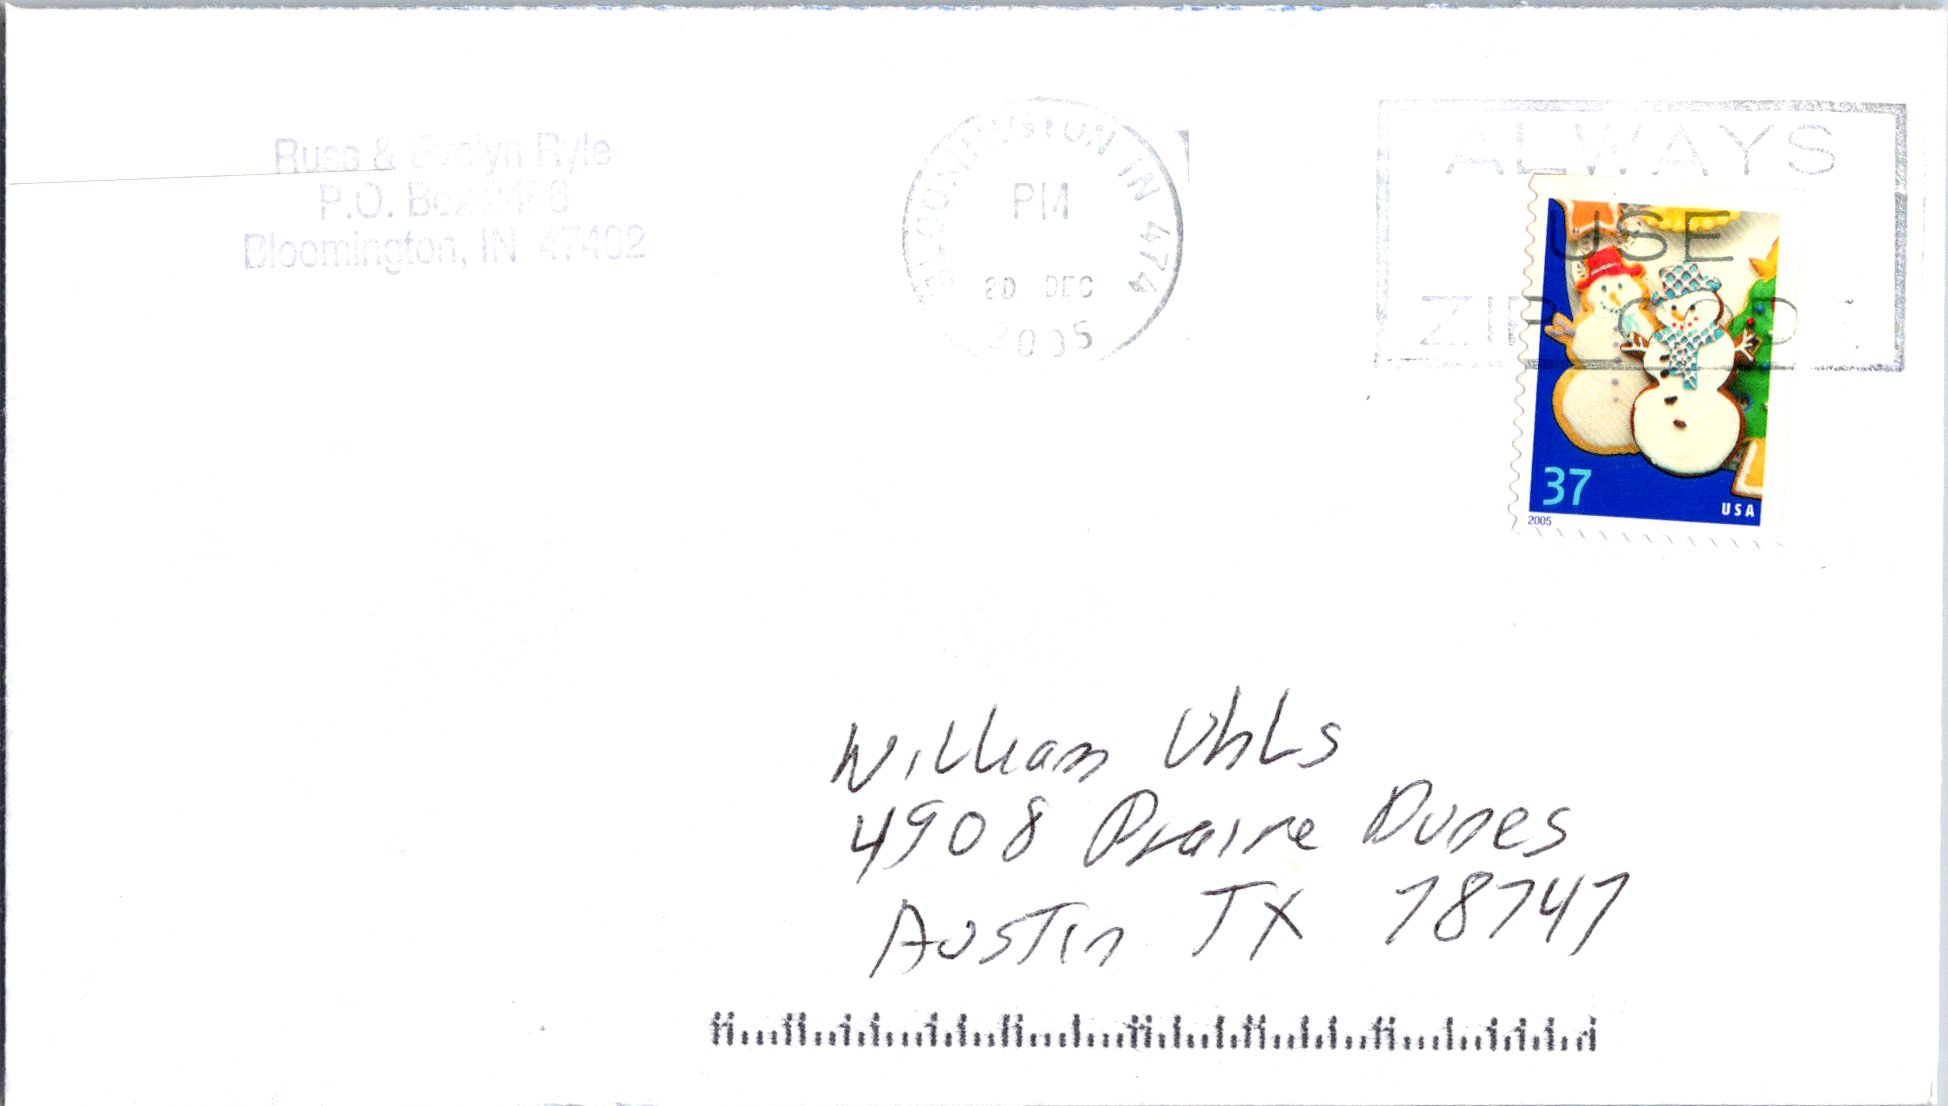 Russ & Evelyn Ryle
P.O. Box
Bloomington, IN 47402
BLOOMINGTON IN 474
PM
20 DEC
2005
ALWAYS
USE
ZIP CODE
37
USA
2005
William Uhls
4908 Prairie Dunes
Austin TX 78747